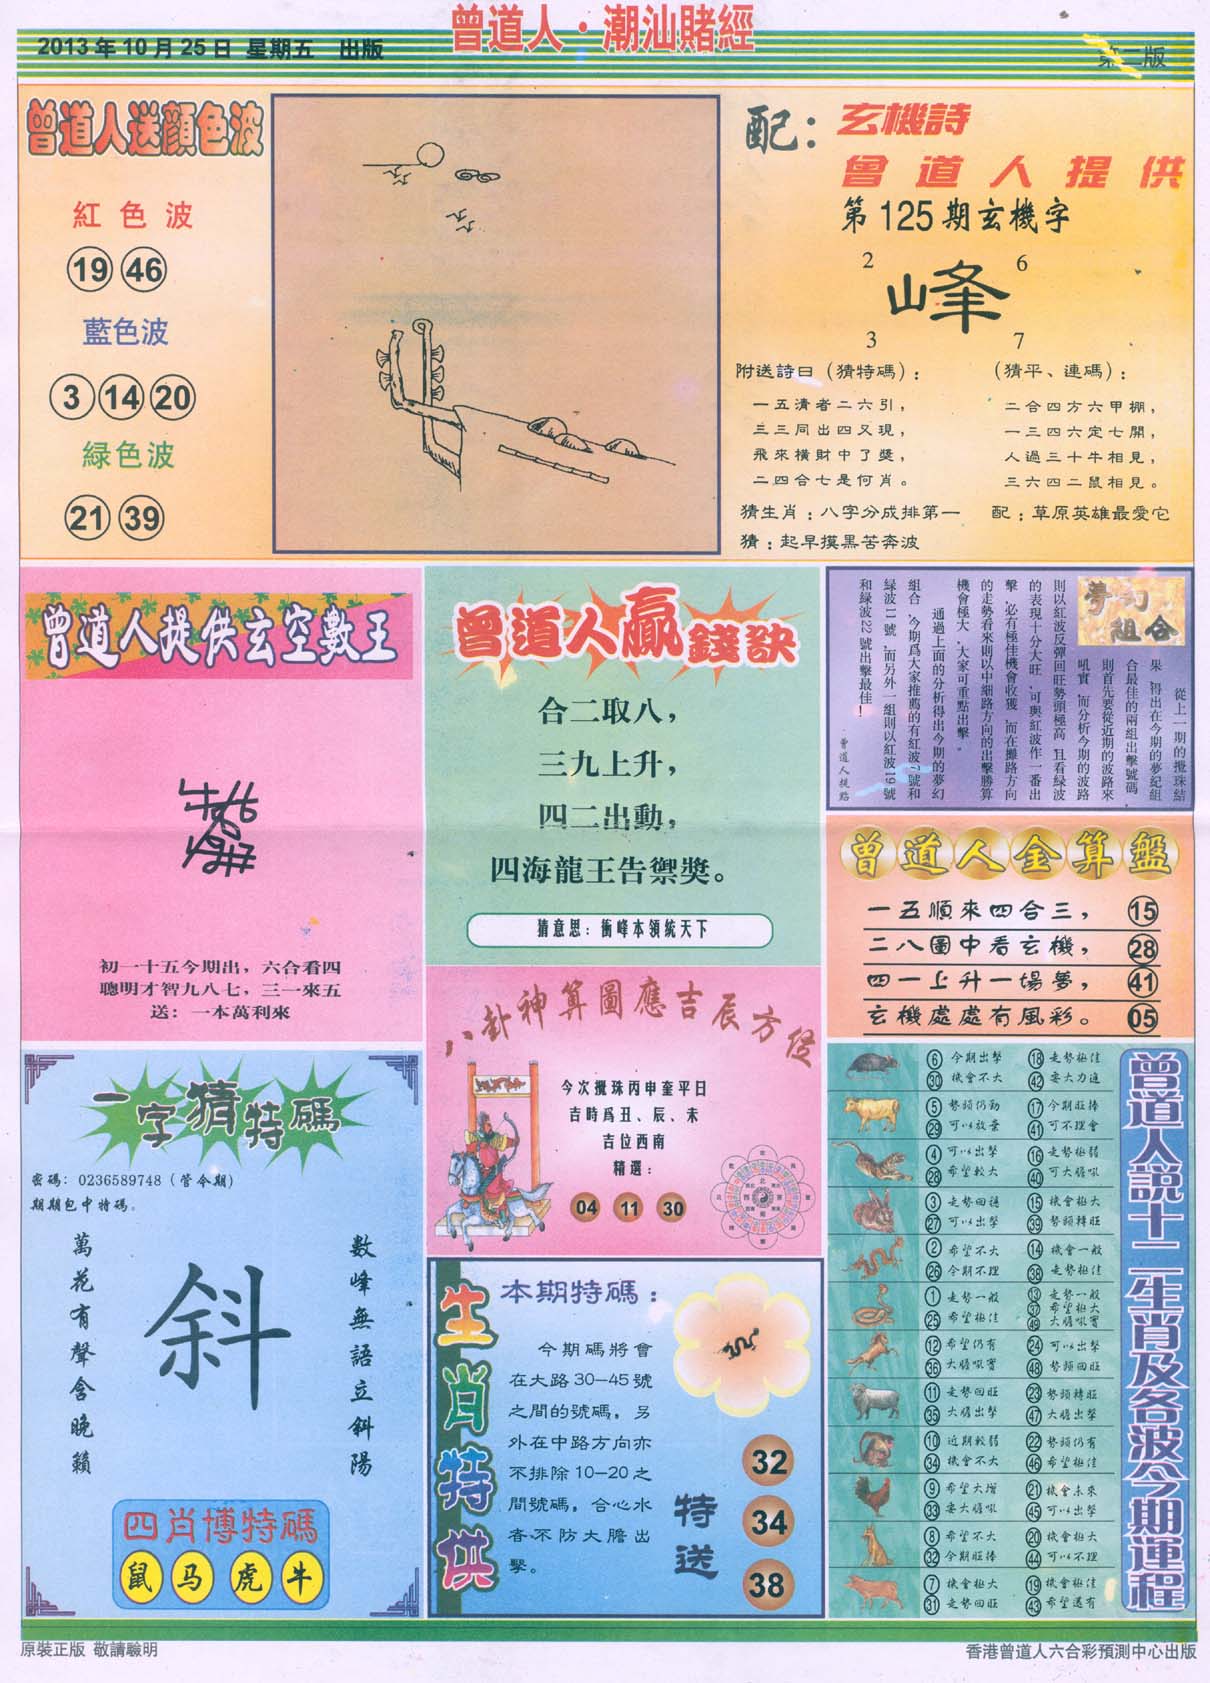 2013年10月25日 星期五 出版
曾道人·潮汕賭經
第二版
曾道人送顏色波
紅色波
19 46
藍色波
3 14 20
緑色波
21 39
配：玄機詩
曾道人提供
第125期玄機字
2 6
峰
3 7
附送詩曰（猜特碼）：
一五清者二六引，
三三同出四又現，
飛來橫財中了獎，
二四合七是何肖。
（猜平、連碼）：
二合四方六甲棚，
一三四六定七開，
人過三十牛相見，
三六四二鼠相見。
猜生肖：八字分成排第一
配：草原英雄最愛它
猜：起早摸黑苦奔波
曾道人提供玄空數王
初一十五今期出，六合看四
聰明才智九八七，三一來五
送：一本萬利來
曾道人贏錢訣
合二取八，
三九上升，
四二出動，
四海龍王告禦獎。
猜意思：衝峰本領統天下
夢幻組合
從上一期的攪珠結
果，得出在今期的夢紀組
合最佳的兩組出擊號碼，
則首先要從近期的波路來
吼實，而分析今期的波路
則以紅波反彈回旺勢頭極高，且看緑波
的表現十分大旺，可與紅波作一番出
擊，必有極佳機會收獲，而在攤路方向
的走勢看來則以中細路方向的出擊勝算
機會極大，大家可重點出擊。
通過上面的分析得出今期的夢幻
組合，今期爲大家推薦的有紅波7號和
緑波11號，而另外一組則以紅波19號
和緑波22號出擊最佳！
·曾道人提點
曾道人金算盤
一五順來四合三， 15
二八圖中看玄機， 28
四一上升一場夢， 41
玄機處處有風彩。 05
八卦神算圖應吉辰方位
今次攪珠丙申奎平日
吉時爲丑、辰、未
吉位西南
精選：
04 11 30
一字猜特碼
密碼：0236589748（管今期）
期期包中特碼。
數峰無語立斜陽
斜
萬花有聲含晚籟
四肖博特碼
鼠 马 虎 牛
生肖特供
本期特碼：
今期碼將會
在大路30—45號
之間的號碼，另
外在中路方向亦
不排除10—20之
間號碼，合心水
者不防大膽出
擊。
特送
32
34
38
曾道人說十二生肖及各波今期運程
6 今期出擊 18 走勢極佳
30 機會不大 42 安大力追
5 勢頭仍勁 17 今期旺捧
29 可以放棄 41 可不理會
4 可以出擊 16 走勢極弱
28 希望較大 40 可大膽吼
3 走勢回穩 15 機會極大
27 可以出擊 39 勢頭轉旺
2 希望不大 14 機會一般
26 今期不理 38 走勢極佳
1 走勢一般 13 走勢一般
25 希望極佳 37 希望極大
49 大膽吼實
12 希望仍有 24 可以出擊
36 大膽吼實 48 勢頭回旺
11 走勢回旺 23 勢頭轉旺
35 大膽出擊 47 大膽出擊
10 近期較弱 22 勢頭仍有
34 機會不大 46 希望極佳
9 希望大增 21 機會未來
33 安大膽吼 45 可以出擊
8 希望不大 20 機會極大
32 今期旺捧 44 可以不理
7 機會極大 19 機會極佳
31 走勢回旺 43 希望還有
原裝正版 敬請驗明
香港曾道人六合彩預測中心出版